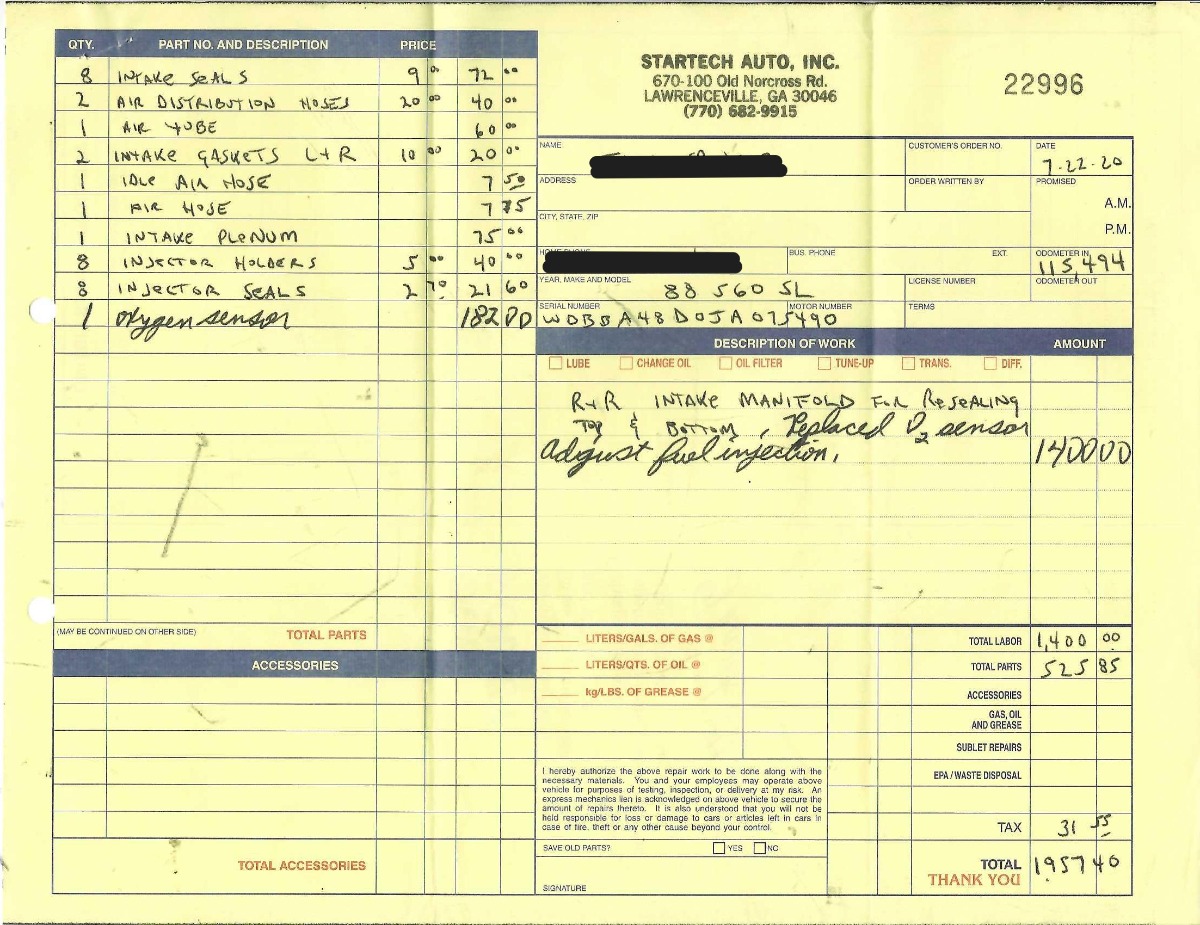 QTY. PART NO. AND DESCRIPTION PRICE
8 INTAKE SEALS 9 00 72 00
2 AIR DISTRIBUTION HOSES 20 00 40 00
1 AIR TUBE 60 00
2 INTAKE GASKETS L+R 10 00 20 00
1 IDLE AIR HOSE 7 50
1 AIR HOSE 7 75
1 INTAKE PLENUM 75 00
8 INJECTOR HOLDERS 5 00 40 00
8 INJECTOR SEALS 2 70 21 60
1 oxygen sensor 182 00
(MAY BE CONTINUED ON OTHER SIDE) TOTAL PARTS
ACCESSORIES
TOTAL ACCESSORIES
STARTECH AUTO, INC.
670-100 Old Norcross Rd.
LAWRENCEVILLE, GA 30046
(770) 682-9915
22996
NAME CUSTOMER'S ORDER NO. DATE
7-22-20
ADDRESS ORDER WRITTEN BY PROMISED
A.M.
P.M.
CITY, STATE, ZIP
HOME PHONE BUS. PHONE EXT. ODOMETER IN
115,494
YEAR, MAKE AND MODEL LICENSE NUMBER ODOMETER OUT
88 560 SL
SERIAL NUMBER MOTOR NUMBER TERMS
WDBBA48D0JA075490
DESCRIPTION OF WORK AMOUNT
LUBE CHANGE OIL OIL FILTER TUNE-UP TRANS. DIFF.
R+R INTAKE MANIFOLD FOR RESEALING
TOP & BOTTOM, Replaced O2 sensor
adjust fuel injection, 1400 00
LITERS/GALS. OF GAS @ TOTAL LABOR 1,400 00
LITERS/QTS. OF OIL @ TOTAL PARTS 525 85
kg/LBS. OF GREASE @ ACCESSORIES
GAS, OIL
AND GREASE
SUBLET REPAIRS
EPA / WASTE DISPOSAL
I hereby authorize the above repair work to be done along with the
necessary materials. You and your employees may operate above
vehicle for purposes of testing, inspection, or delivery at my risk. An
express mechanics lien is acknowledged on above vehicle to secure the
amount of repairs thereto. It is also understood that you will not be
held responsible for loss or damage to cars or articles left in cars in
case of fire, theft or any other cause beyond your control.
TAX 31 55
SAVE OLD PARTS? YES NO
SIGNATURE
TOTAL 1957 40
THANK YOU